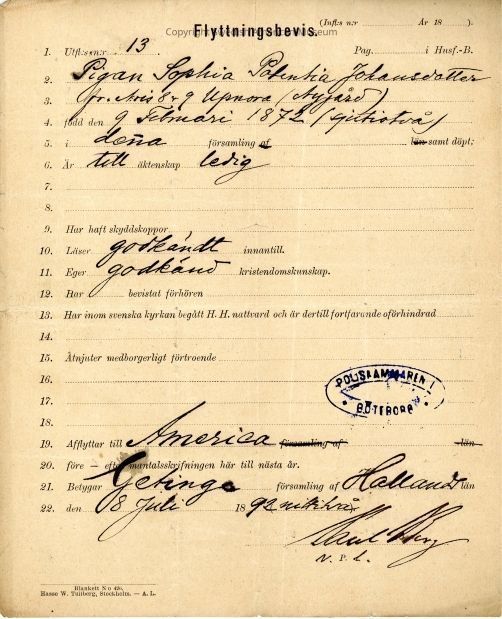 (Inflt n:r      År 18   ).
Flyttningsbevis.
1. Utflt:s n:r 13 Pag.      i Husf.-B.
2. Pigan Sophia Potentia Johansdotter
3. fr. Åris 8 & 9 Uppnora (Nygård)
4. född den 9 Februari 1872 (sjutiotvå)
5. i denna församling af      län samt döpt:
6. Är till äktenskap ledig
7.
8.
9. Har haft skyddskoppor
10. Läser godkändt innantill.
11. Eger godkänd kristendomskunskap.
12. Har      bevistat förhören
13. Har inom svenska kyrkan begått H. H. nattvard och är dertill fortfarande oförhindrad
14.
15. Åtnjuter medborgerligt förtroende
16.
POLISKAMMAREN I
GÖTEBORG
17.
18.
19. Afflyttar till America församling af      län
20. före – efter mantalsskrifningen här till nästa år.
21. Betygar Getinge församling af Halland län
22. den 8 Juli 1892 nitiotvå
Carl Berg
v. P. L.
Blankett No 426.
Hasse W. Tullberg, Stockholm. — A. L.